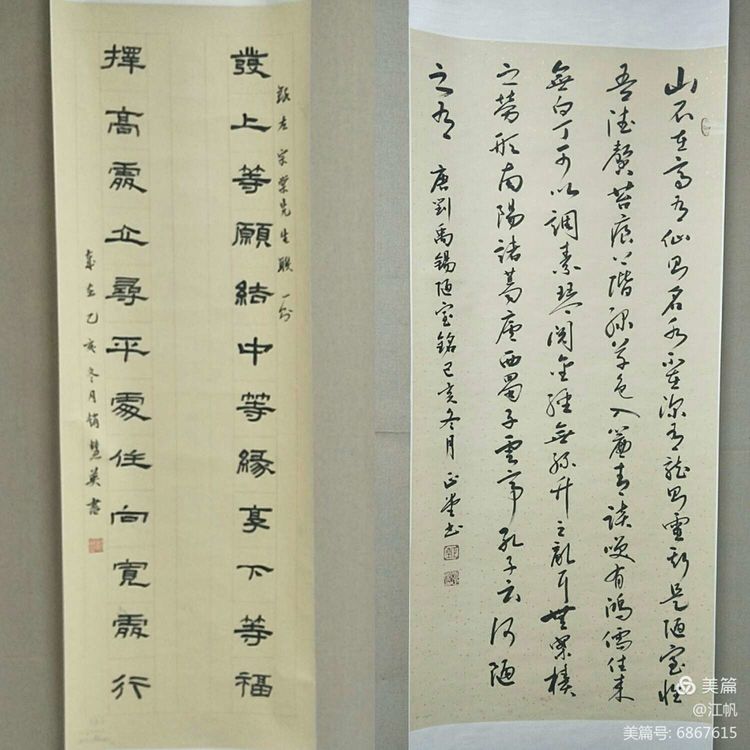 發上等願結中等緣享下等福
錄左宗棠先生聯一則
擇高處立尋平處住向寬處行
歲在己亥冬月慧英書
山不在高有仙則名水不在深有龍則靈斯是陋室惟
吾德馨苔痕上階綠草色入簾青談笑有鴻儒往來
無白丁可以調素琴閱金經無絲竹之亂耳無案牘
之勞形南陽諸葛廬西蜀子雲亭孔子云何陋
之有 唐劉禹錫陋室銘己亥冬月正堂书
美篇
@江帆
美篇号: 6867615